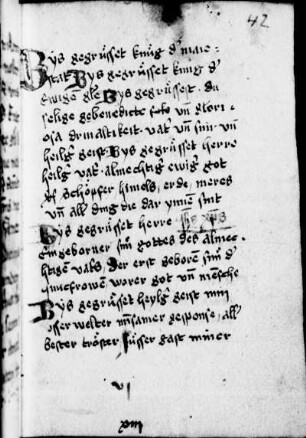 42
Bys gegrüsset künig d' maie-
stat Bys gegrüsset künig d'
ewigen gle Bys gegrüsset du
selige gebenedicte vn glori-
osa drivaltikeit vat' vn sun vn
heilg' geist Bys gegrüsset herre
heilg' vat' almechtig' ewig' got
schöpfer himels erde meres
vn all' ding die dar ynnen sint
Bys gegrüsset herre ihs xps
eingeborner sun gottes des almec-
htigen vaters Der erst geboren sun d'
Junckfrowen worer got vn mensche
Bys gegrüsset heylg' geist min
gespons all'
bester tröster süsser gast miner
vi
xiii